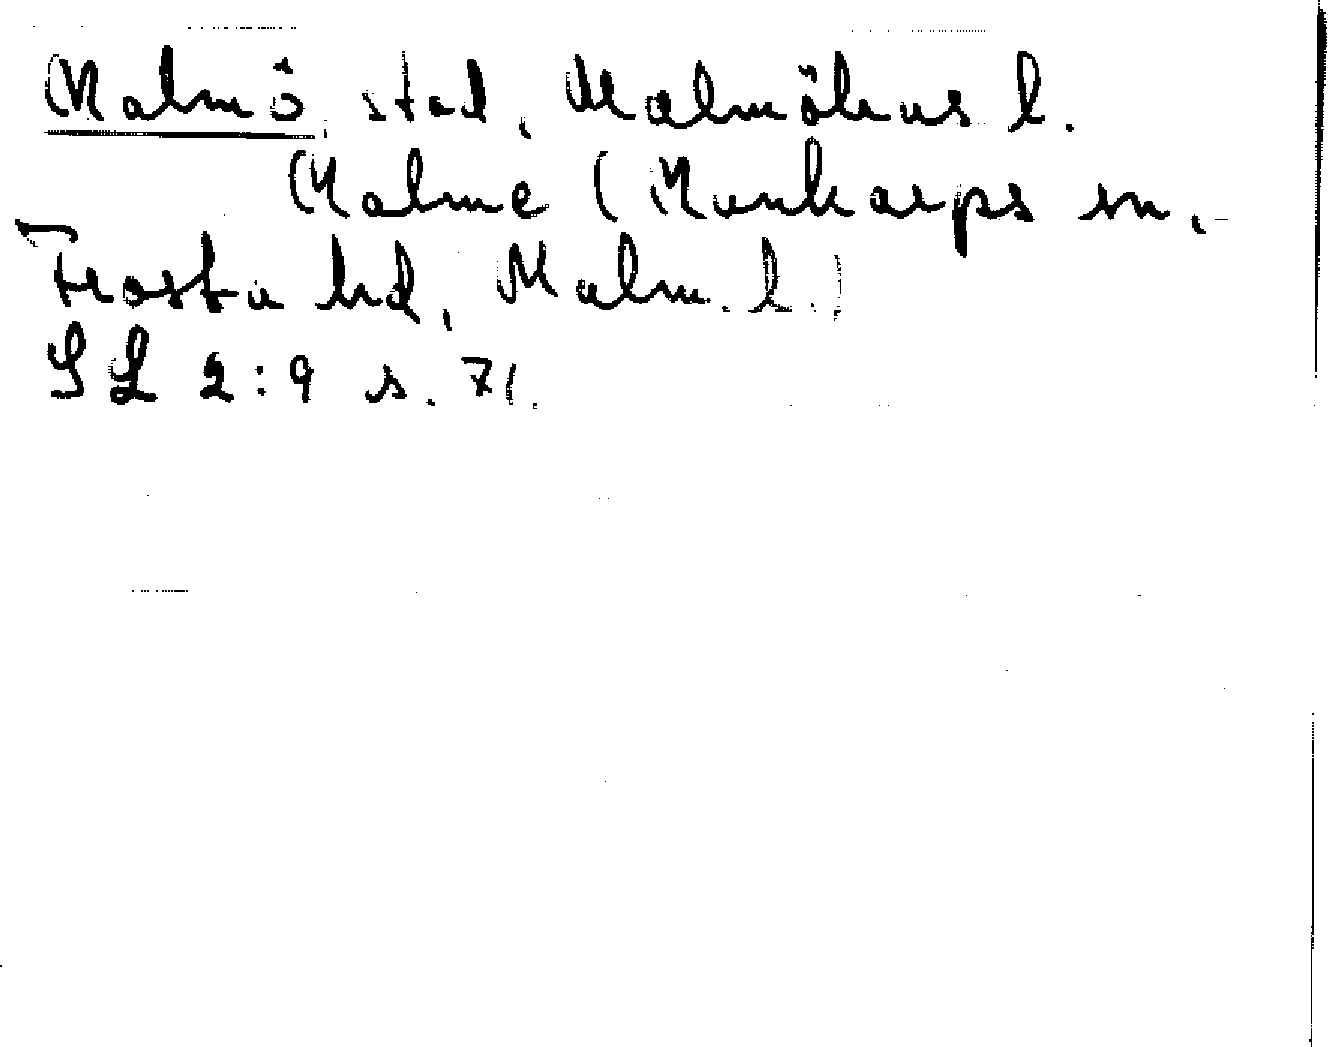 Malmö, stad, Malmöhus l.
Malme (Munkarps sn,
Frosta hd, Malm. l.)
SL 2:9 s. 71.